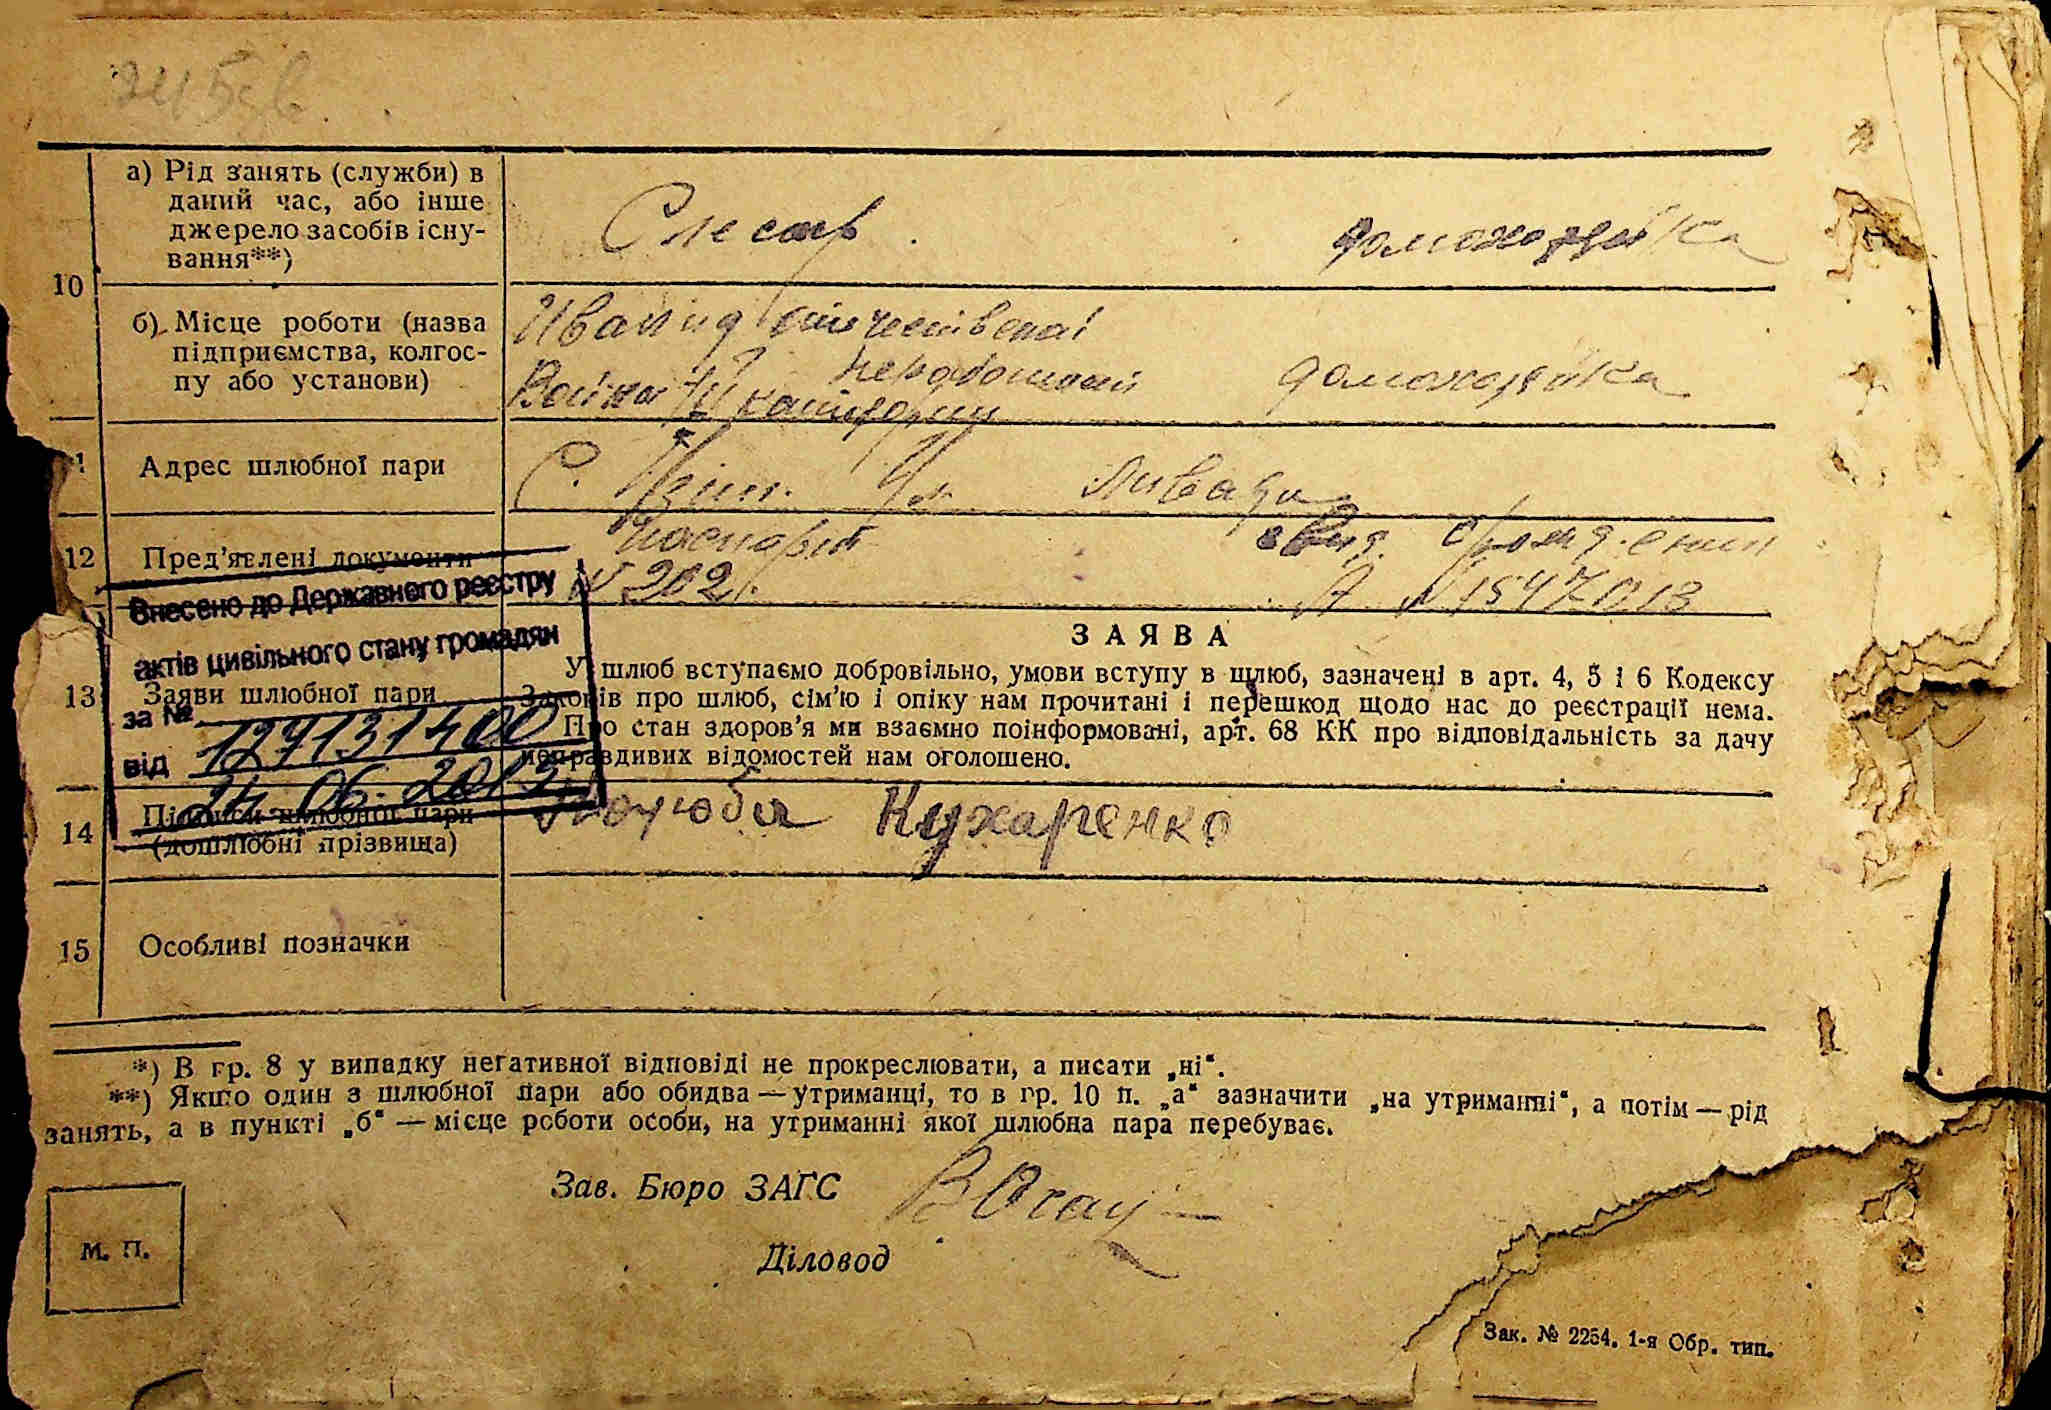 10
а) Рід занять (служби) в
даний час, або інше
джерело засобів існу-
вання**)
Слесарь
домохозяйка
б) Місце роботи (назва
підприємства, колгос-
пу або установи)
Инвалид отечественой
Войны
категории
домохозяйка
Адрес шлюбної пари
С.
Ул
12
Пред'явлені документи
паспорт
N 202
свид. о рождении
А N
Внесено до Державного реєстру
актів цивільного стану громадян
за №
від
24.06.2013
13
Заяви шлюбної пари
ЗАЯВА
У шлюб вступаємо добровільно, умови вступу в шлюб, зазначені в арт. 4, 5 і 6 Кодексу
Законів про шлюб, сім'ю і опіку нам прочитані і перешкод щодо нас до реєстрації нема.
Про стан здоров'я ми взаємно поінформовані, арт. 68 КК про відповідальність за дачу
неправдивих відомостей нам оголошено.
14
Підписи шлюбної пари
(дошлюбні прізвища)
Кухаренко
15
Особливі позначки
*) В гр. 8 у випадку негативної відповіді не прокреслювати, а писати „ні“.
**) Якщо один з шлюбної пари або обидва — утриманці, то в гр. 10 п. „а“ зазначити „на утриманні“, а потім — рід
занять, а в пункті „б“ — місце роботи особи, на утриманні якої шлюбна пара перебуває.
Зав. Бюро ЗАГС
Діловод
М. П.
Зак. № 2254. 1-я Обр. тип.